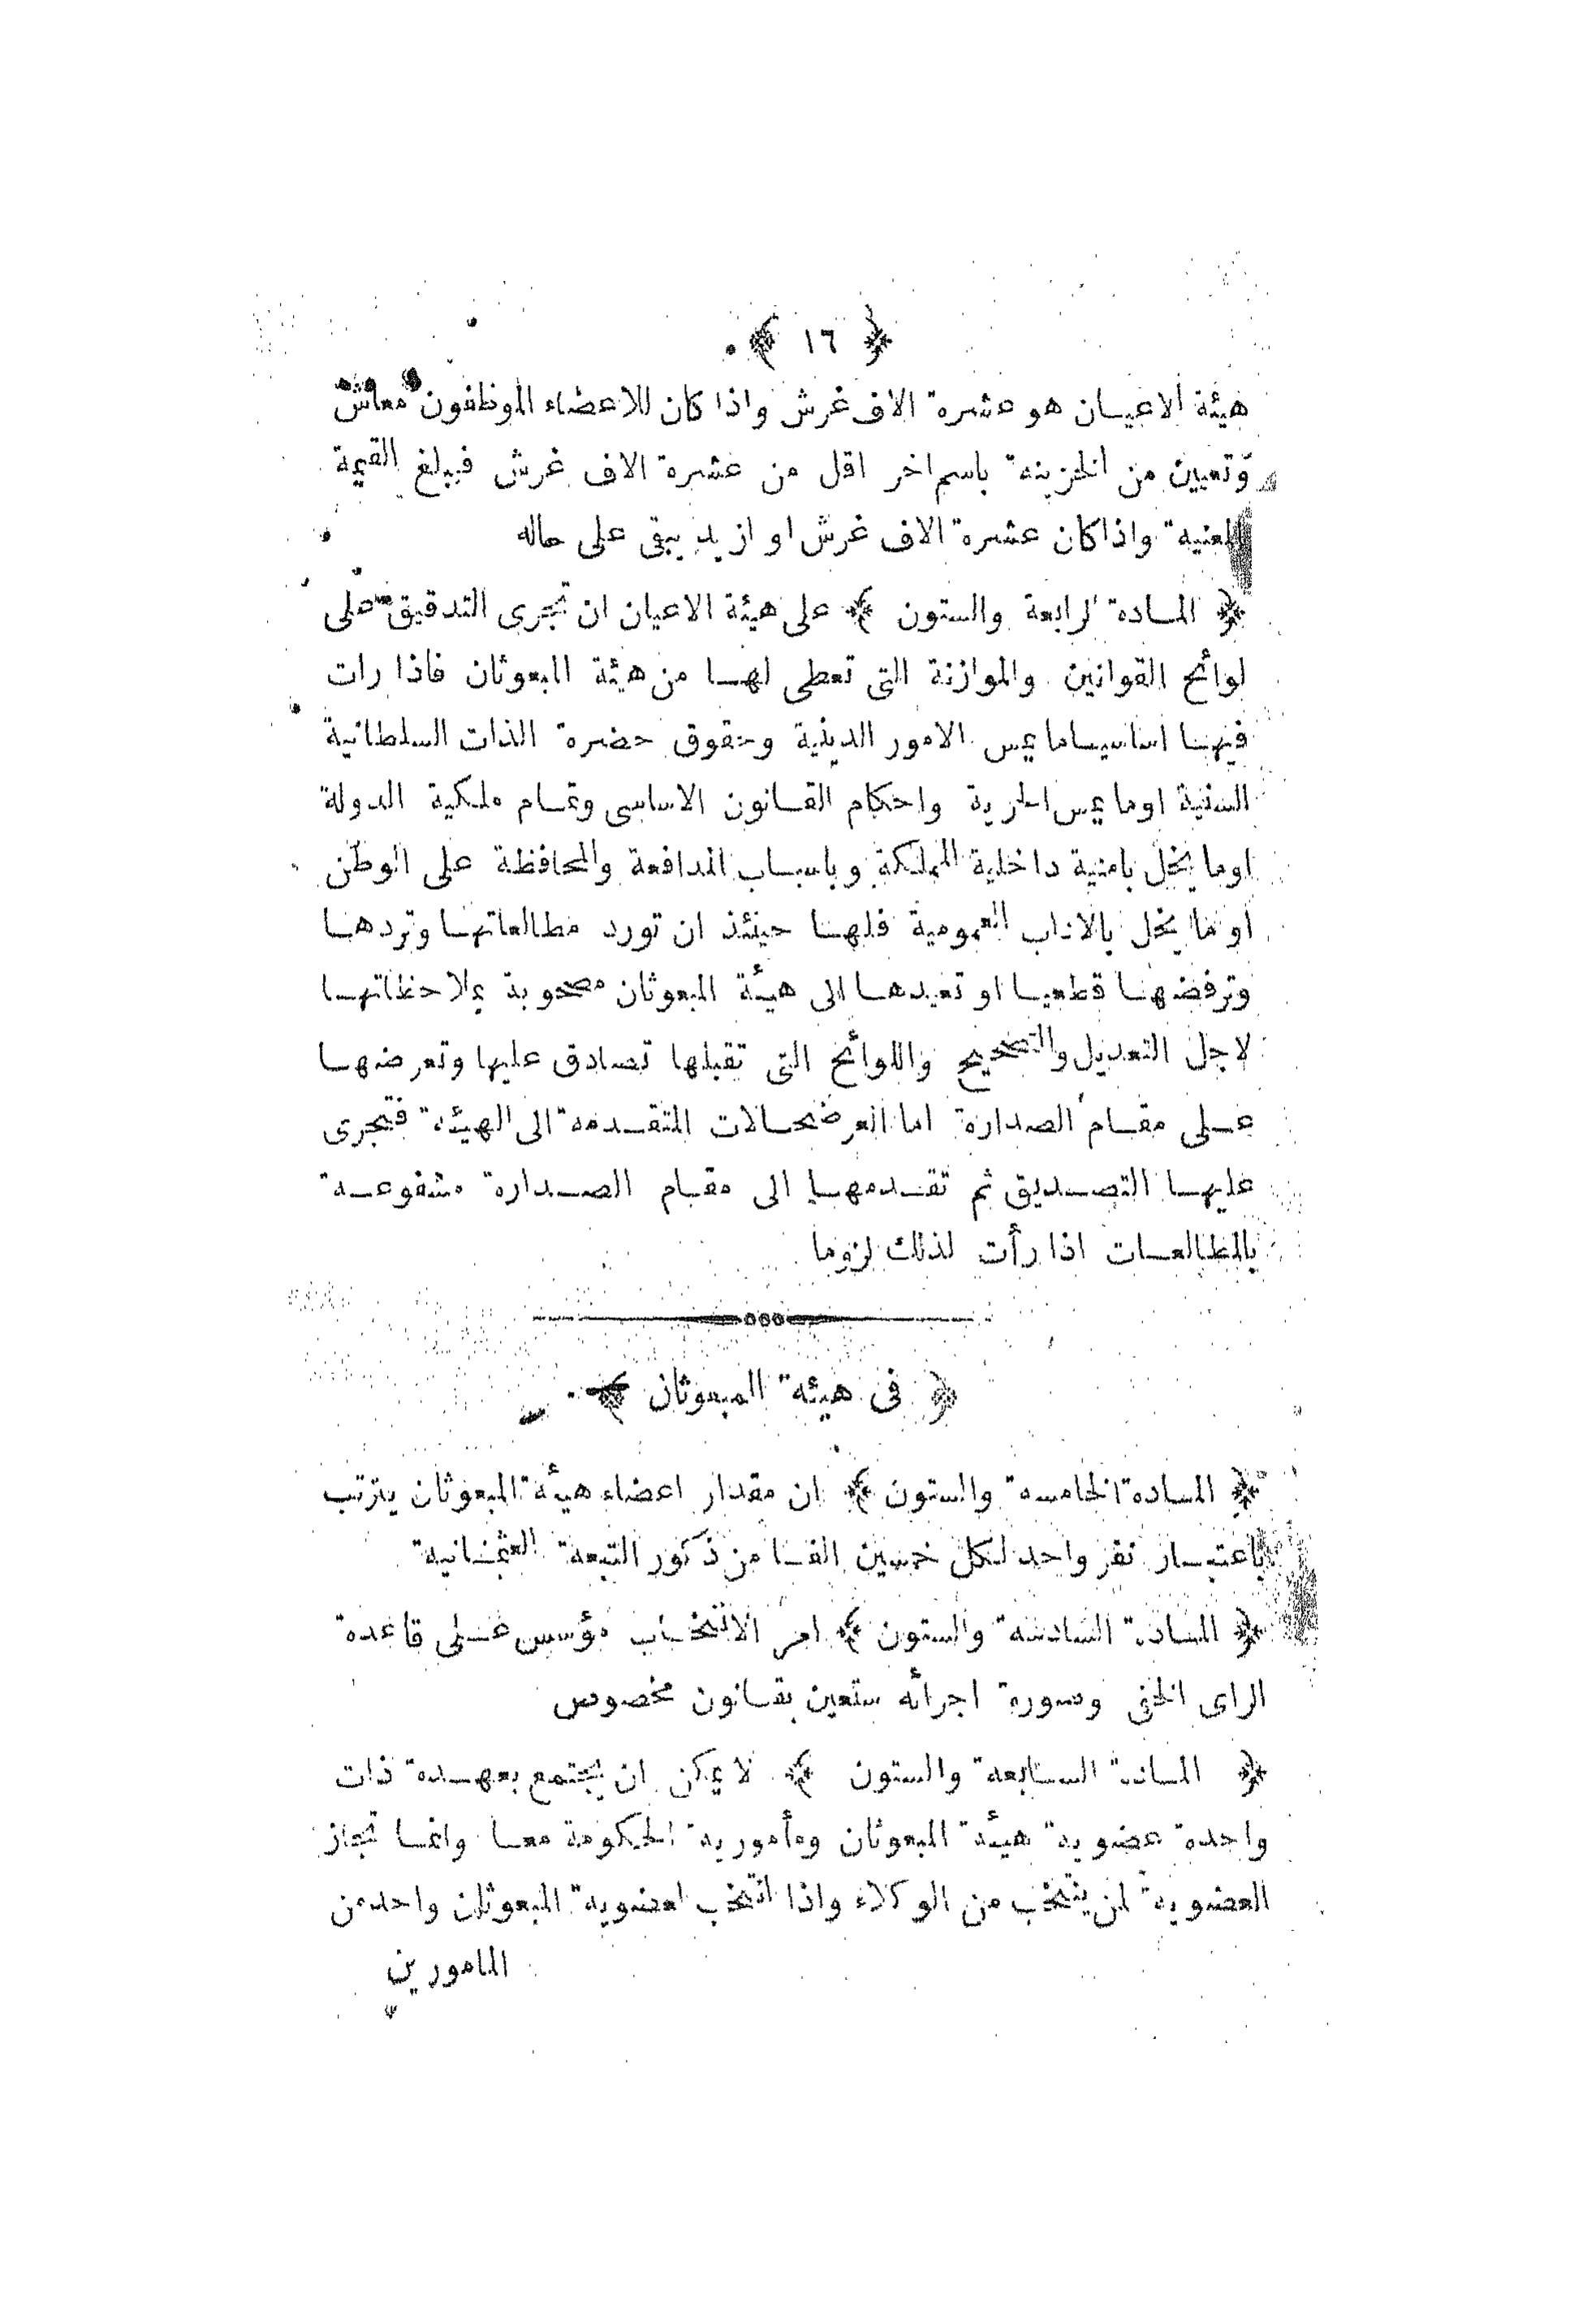 ﴿ ١٦ ﴾
هيئة الاعيان هو عشرة الاف غرش واذا كان للاعضاء الموظفون معاش
وتعيين من الخزينة باسم اخر اقل من عشرة الاف غرش فيبلغ القيمة
المعنية واذا كان عشرة الاف غرش او ازيد يبقى على حاله
﴿ المادة الرابعة والستون ﴾ على هيئة الاعيان ان تجرى التدقيق على
لوائح القوانين والموازنة التى تعطى لها من هيئة المبعوثان فاذا رات
فيها اساسيا ما يمس الامور الدينية وحقوق حضرة الذات السلطانية
السنية او ما يمس الحرية واحكام القانون الاساسى وتمام ملكية الدولة
او ما يخل بامنية داخلية المملكة وباسباب المدافعة والمحافظة على الوطن
او ما يخل بالاداب العمومية فلها حينئذ ان تورد مطالعاتها وتردها
وترفضها قطعيا او تعيدها الى هيأة المبعوثان مصحوبة بملاحظاتها
لاجل التعديل والتصحيح واللوائح التى تقبلها تصادق عليها وتعرضها
على مقام الصدارة اما العرضحالات المتقدمة الى الهيئة فتجرى
عليها التصديق ثم تقدمها الى مقام الصدارة مشفوعة
بالمطالعات اذا رأت لذلك لزوما
﴿ فى هيئة المبعوثان ﴾
﴿ المادة الخامسة والستون ﴾ ان مقدار اعضاء هيأة المبعوثان يترتب
باعتبار نفر واحد لكل خمسين الفا من ذكور التبعة العثمانية
﴿ المادة السادسة والستون ﴾ امر الانتخاب مؤسس على قاعدة
الراى الخفى وصورة اجرائه ستعين بقانون مخصوص
﴿ المادة السابعة والستون ﴾ لا يمكن ان يجتمع بعهدة ذات
واحدة عضوية هيأة المبعوثان ومأمورية الحكومة معا وانما تجاز
العضوية لمن ينتخب من الوكلاء واذا انتخب لعضوية المبعوثان واحد من
المامورين